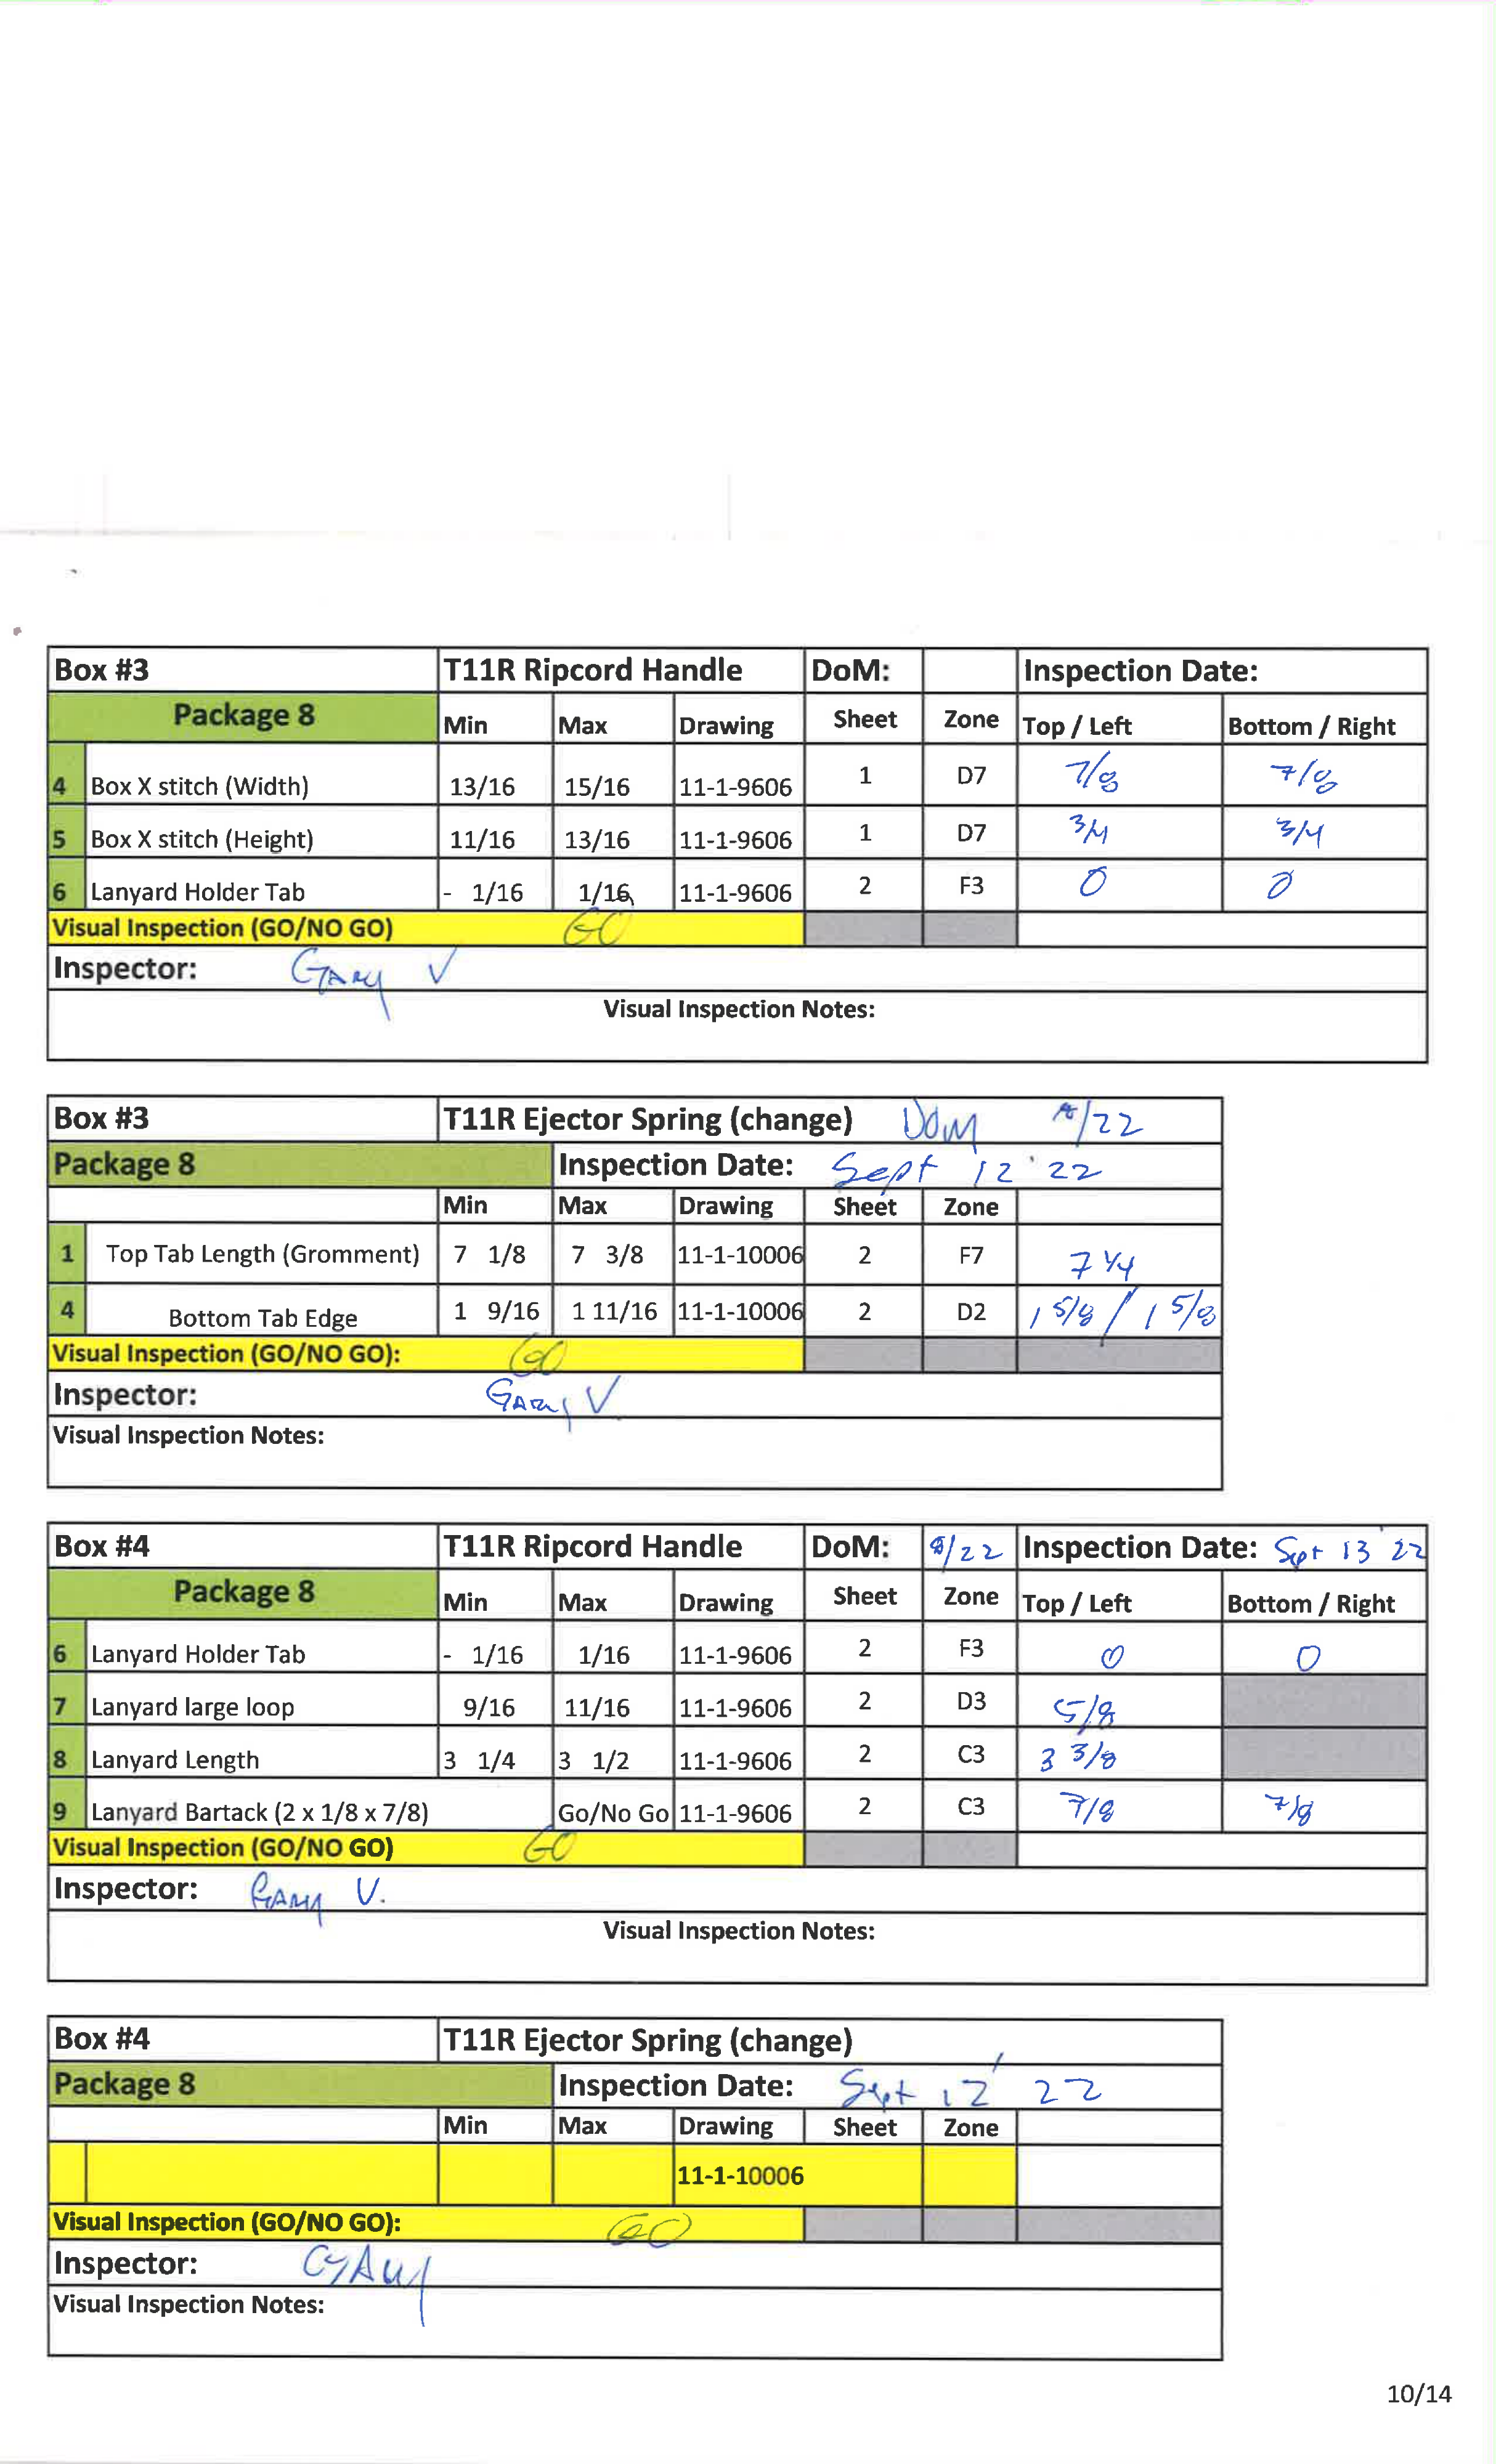 Box #3 T11R Ripcord Handle DoM: Inspection Date:
Package 8 Min Max Drawing Sheet Zone Top / Left Bottom / Right
4 Box X stitch (Width) 13/16 15/16 11-1-9606 1 D7 7/8 7/8
5 Box X stitch (Height) 11/16 13/16 11-1-9606 1 D7 3/4 3/4
6 Lanyard Holder Tab - 1/16 1/16 11-1-9606 2 F3 0 0
Visual Inspection (GO/NO GO) GO
Inspector: Gary V
Visual Inspection Notes:
Box #3 T11R Ejector Spring (change) DOM /22
Package 8 Inspection Date: Sept 12 '22
Min Max Drawing Sheet Zone
1 Top Tab Length (Gromment) 7 1/8 7 3/8 11-1-10006 2 F7 7 1/4
4 Bottom Tab Edge 1 9/16 1 11/16 11-1-10006 2 D2 1 5/8 / 1 5/8
Visual Inspection (GO/NO GO): GO
Inspector: Gary V.
Visual Inspection Notes:
Box #4 T11R Ripcord Handle DoM: /22 Inspection Date: Sept 13 '22
Package 8 Min Max Drawing Sheet Zone Top / Left Bottom / Right
6 Lanyard Holder Tab - 1/16 1/16 11-1-9606 2 F3 0 0
7 Lanyard large loop 9/16 11/16 11-1-9606 2 D3 5/8
8 Lanyard Length 3 1/4 3 1/2 11-1-9606 2 C3 3 3/8
9 Lanyard Bartack (2 x 1/8 x 7/8) Go/No Go 11-1-9606 2 C3 7/8 7/8
Visual Inspection (GO/NO GO) GO
Inspector: Gary V.
Visual Inspection Notes:
Box #4 T11R Ejector Spring (change)
Package 8 Inspection Date: Sept 12 '22
Min Max Drawing Sheet Zone
11-1-10006
Visual Inspection (GO/NO GO): GO
Inspector: Gary
Visual Inspection Notes:
10/14